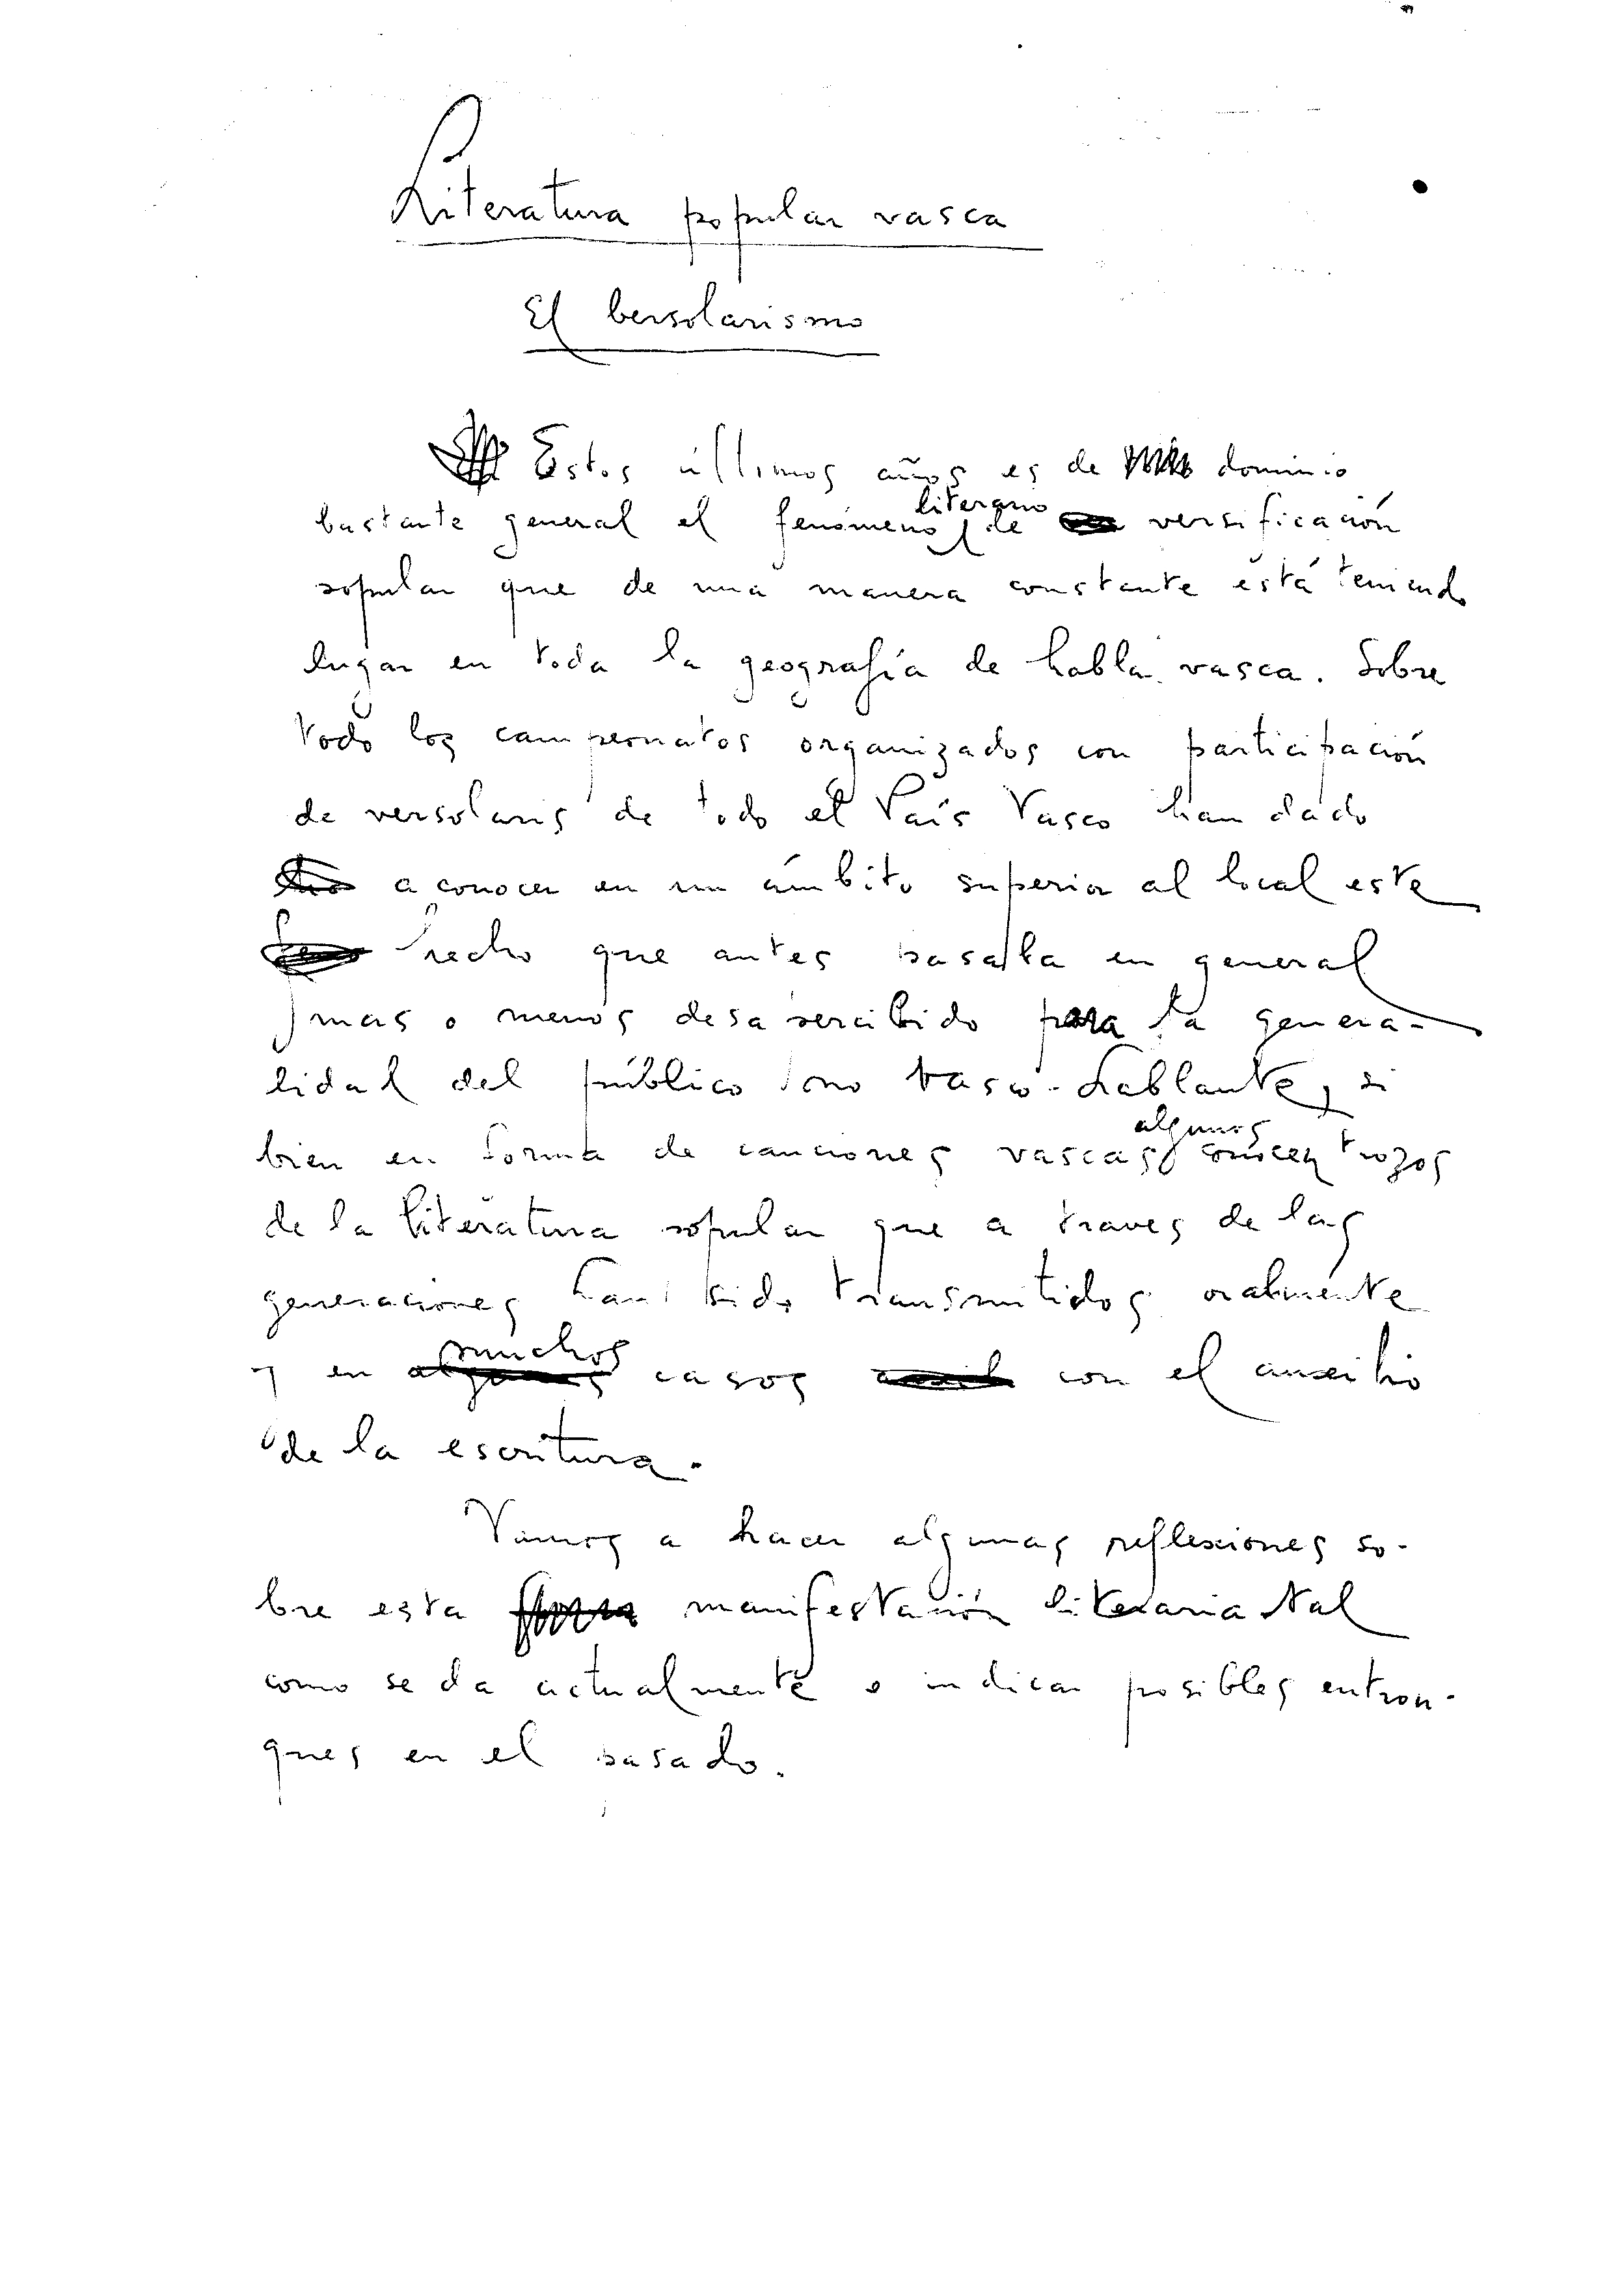 Literatura popular vasca
El bersolarismo
Estos últimos años es de dominio
bastante general el fenómeno literario de versificación
popular que de una manera constante está teniendo
lugar en toda la geografía de habla vasca. Sobre
todo los campeonatos organizados con participación
de versolaris de todo el País Vasco han dado
a conocer en un ámbito superior al local este
hecho que antes pasaba en general
mas o menos desapercibido para la genera-
lidad del público no vasco-hablante, si
bien en forma de canciones vascas algunos conocen trozos
de la literatura popular que a traves de las
generaciones han sido transmitidos oralmente
y en muchos casos con el auxilio
de la escritura.
Vamos a hacer algunas reflexiones so-
bre esta manifestación literaria tal
como se da actualmente e indicar posibles entron-
ques en el pasado.